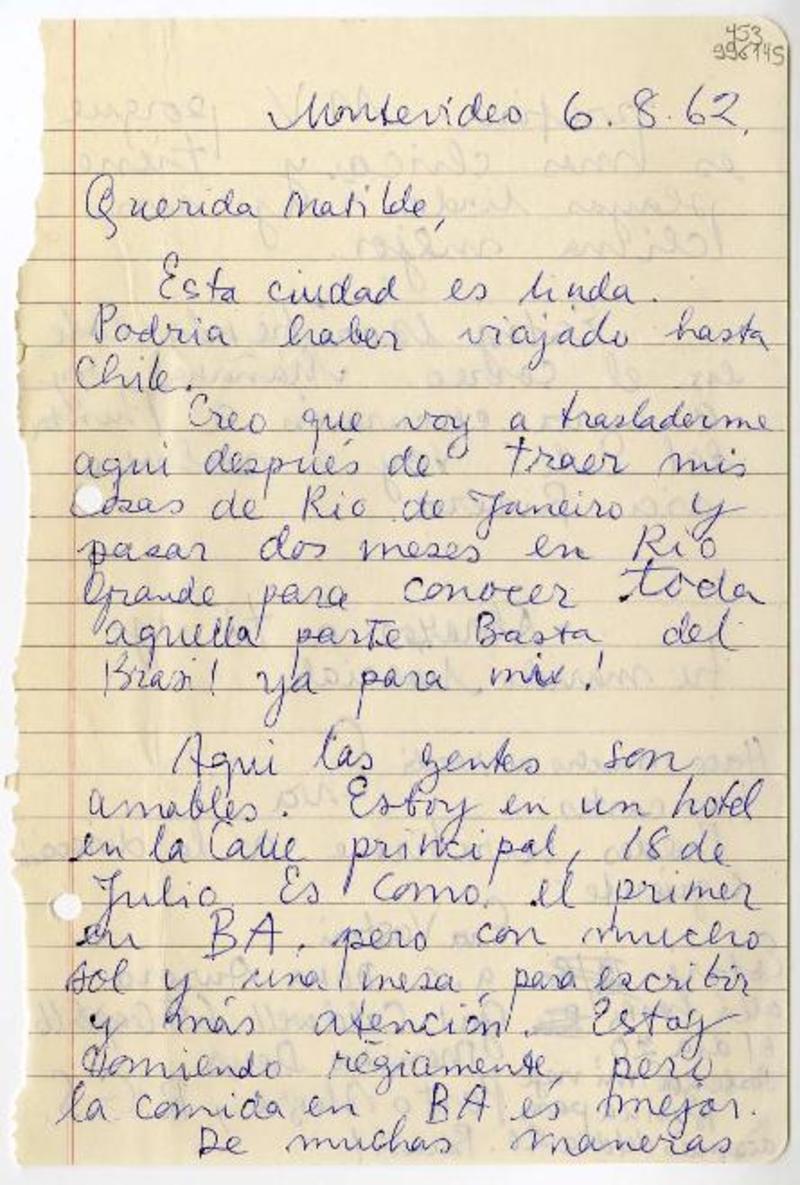 453
996145
Montevideo 6.8.62.
Querida Matilde,
Esta ciudad es linda.
Podria haber viajado hasta
Chile.
Creo que voy a trasladerme
aqui después de traer mis
cosas de Rio de Janeiro y
pasar dos meses en Rio
Grande para conocer toda
aquella parte. Basta del
Brasil ya para mix!
Aqui las gentes son
amables. Estoy en un hotel
en la Calle principal, 18 de
Julio. Es como el primer
en BA, pero con mucho
sol y una mesa para escribir
y más atención. Estoy
comiendo régiamente, pero
la comida en BA es mejor.
De muchas maneras